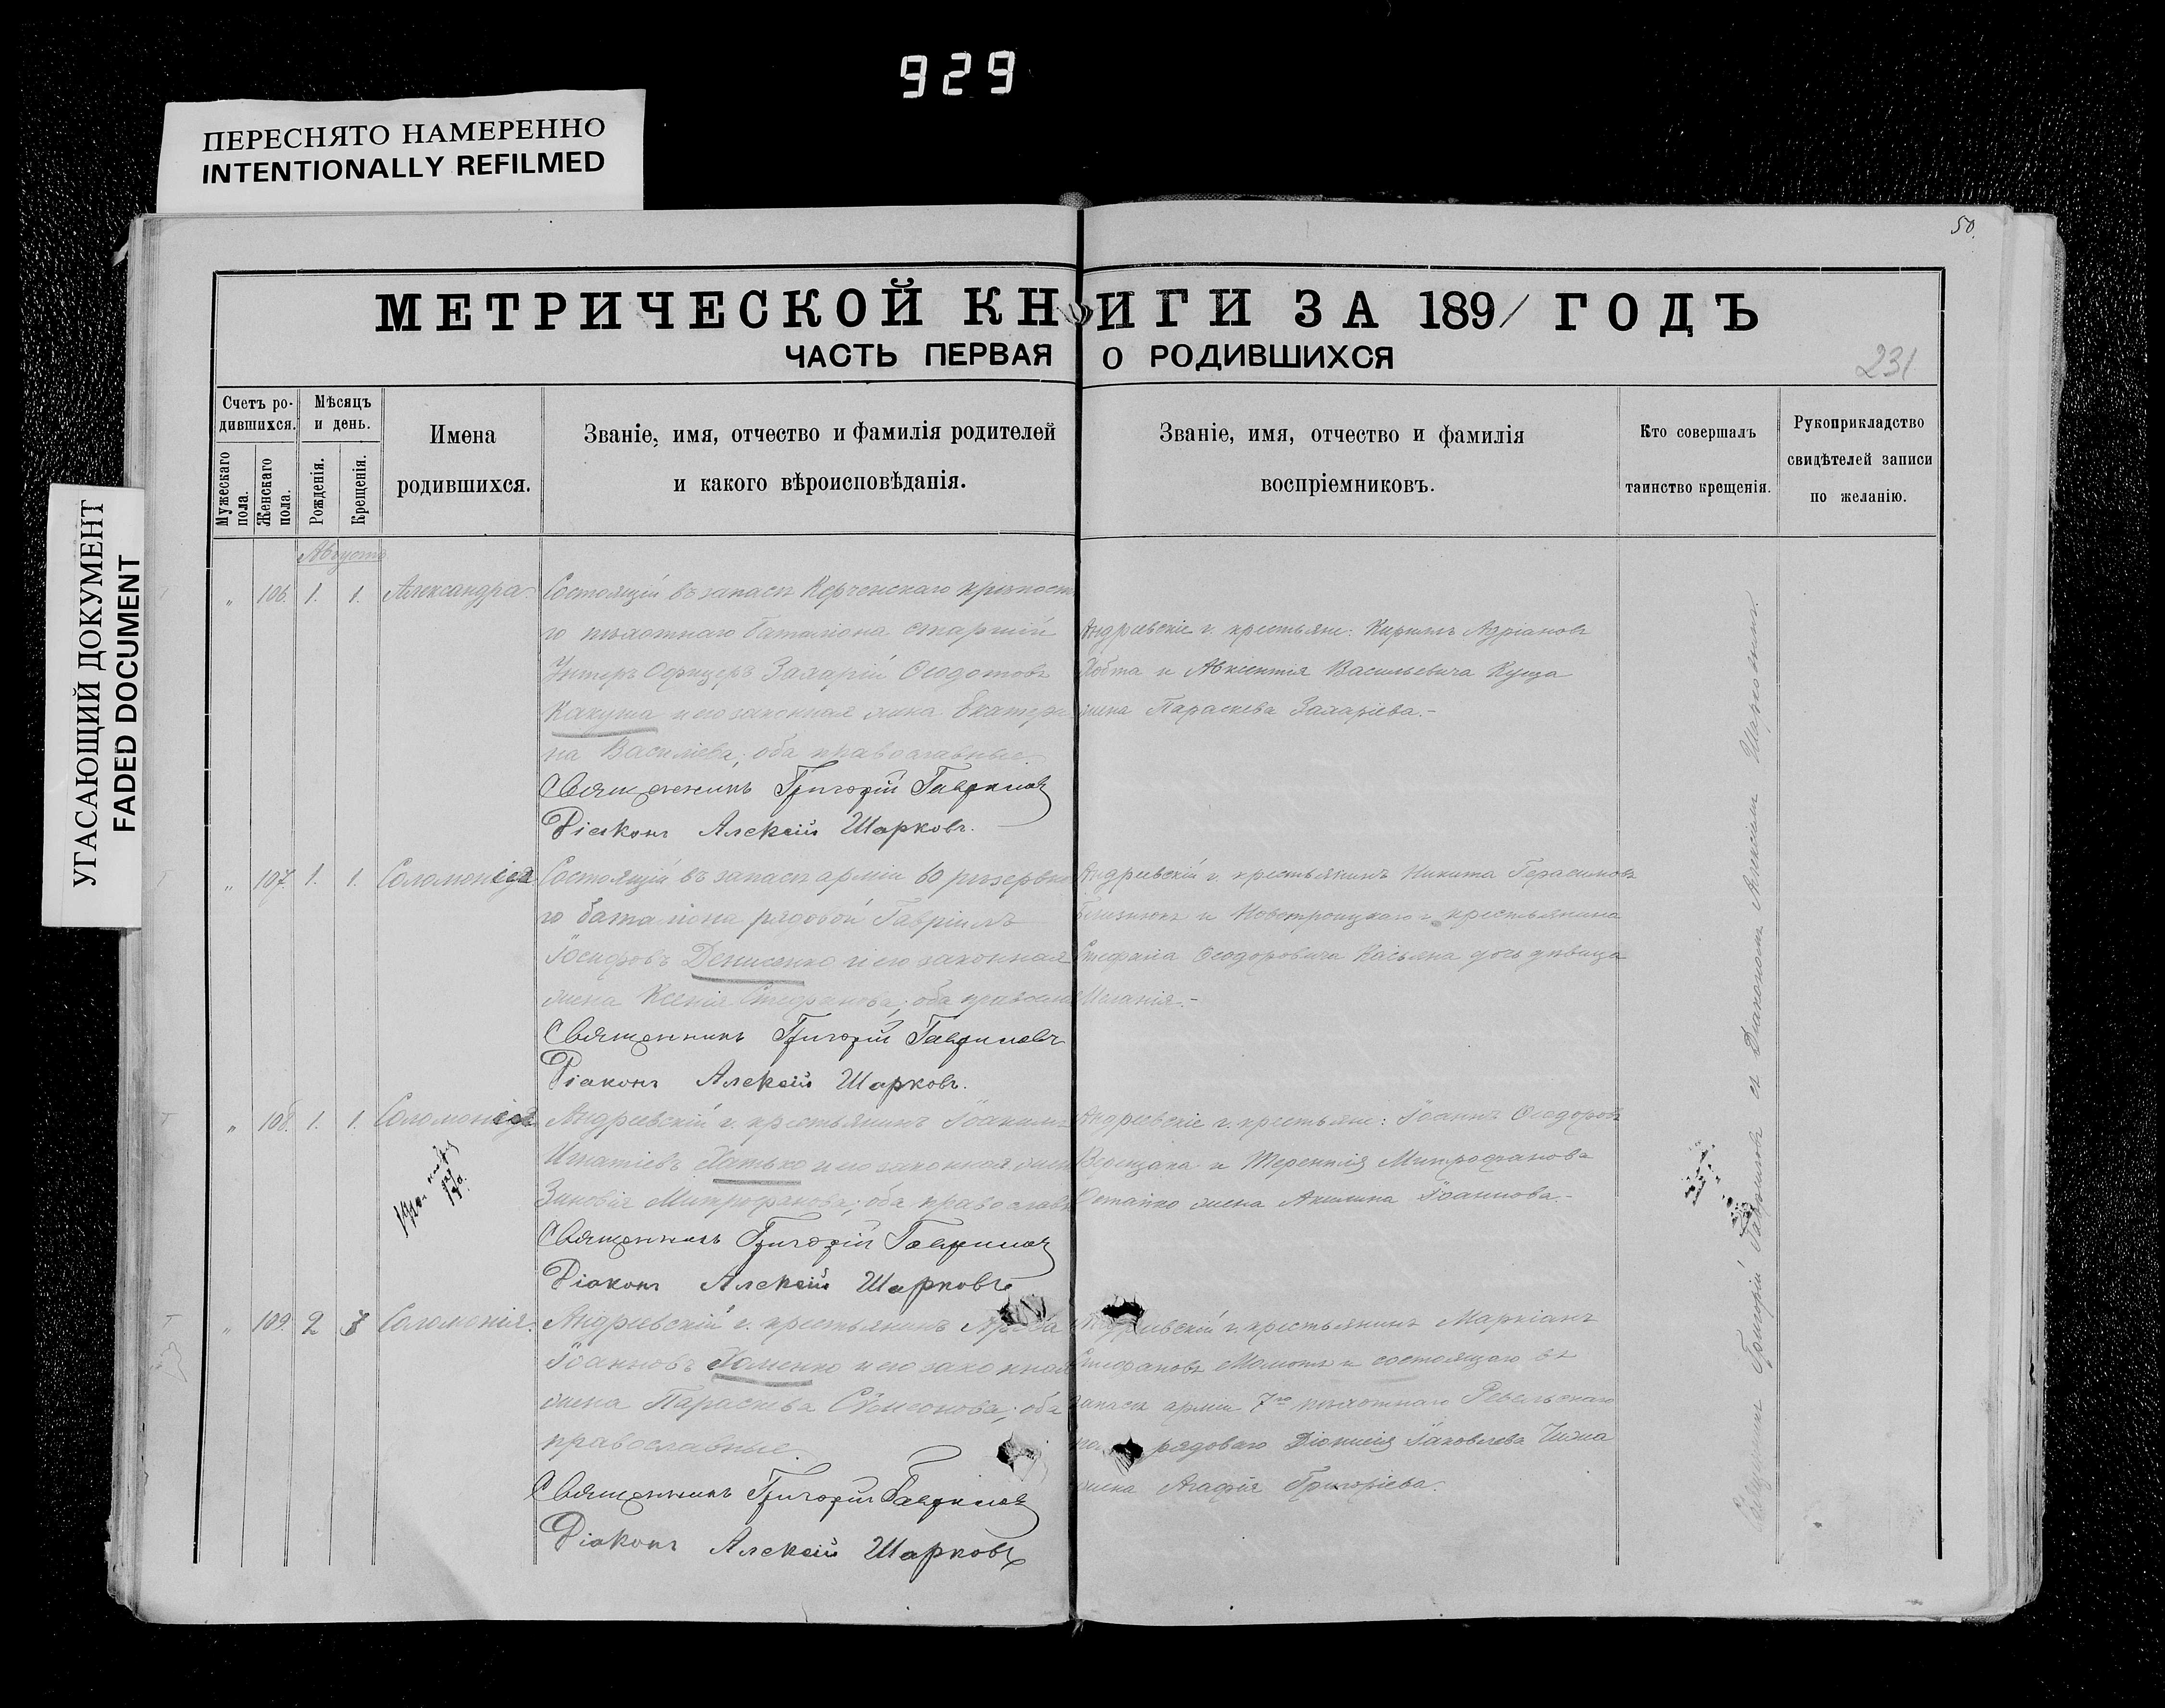 929
ПЕРЕСНЯТО НАМЕРЕННО
INTENTIONALLY REFILMED
УГАСАЮЩИЙ ДОКУМЕНТ
FADED DOCUMENT
50.
МЕТРИЧЕСКОЙ КНИГИ ЗА 1891 ГОДЪ
ЧАСТЬ ПЕРВАЯ О РОДИВШИХСЯ
231
Счетъ ро-
дившихся.
Мужескаго пола.
Женскаго пола.
Мѣсяцъ
и день.
Рожденія.
Крещенія.
Имена
родившихся.
Званіе, имя, отчество и фамилія родителей
и какого вѣроисповѣданія.
Званіе, имя, отчество и фамилія
воспріемниковъ.
Кто совершалъ
таинство крещенія.
Рукоприкладство
свидѣтелей записи
по желанію.
Августъ
" 106. 1. 1. Александра
Состоящій въ запасѣ Керченскаго крѣпост
го пѣхотнаго баталіона старшій
Унтеръ Офицеръ Захарій Ѳеодотовъ
и его законная жена Екатери
на Василіева; оба православные.
Священникъ Григорій Гавриловъ
Діаконъ Алексій Шарковъ.
Андреевскіе г. крестьяне: Кириллъ Адріановъ
и Авксентія Васильевича Куща
жена Параскева Захаріева.-
" 107. 1. 1. Соломонія
Состоящій въ запасѣ арміи 60 резервна
го баталіона рядовой Гавріилъ
Іосифовъ Денисенко и его законная
жена Ксенія Стефанова; оба православ
Священникъ Григорій Гавриловъ
Діаконъ Алексій Шарковъ.
Андреевскій г. крестьянинъ Никита Герасимовъ
и Новотроицкаго г. крестьянина
Стефана Ѳеодоровича Касьяна дочь дѣвица
Меланія.-
" 108. 1. 1. Соломонія
Андреевскій г. крестьянинъ Іоакимъ
Игнатіевъ Хатько и его законная жена
Зиновія Митрофанова; оба православн
Священникъ Григорій Гавриловъ
Діаконъ Алексій Шарковъ
Андреевскіе г. крестьяне: Іоаннъ Ѳеодоровъ
Верещака и Терентія Митрофанова
Остапко жена Акилина Іоаннова.-
" 109. 2 3 Соломонія.
Андреевскій г. крестьянинъ
Іоанновъ Хоменко и его законная
жена Параскева Сѵмеонова; оба
православные.
Священникъ Григорій Гавриловъ
Діаконъ Алексій Шарковъ
Андреевской г. крестьянинъ Маркіанъ
Стефановъ Момотъ и состоящаго въ
запасѣ арміи 7го пѣхотнаго Ревельскаго
рядоваго Діонисія Іаковлева Чижа
жена Агафія Григоріева.
Священникъ Григорій Гавриловъ съ Діакономъ Алексіемъ Шарковымъ.